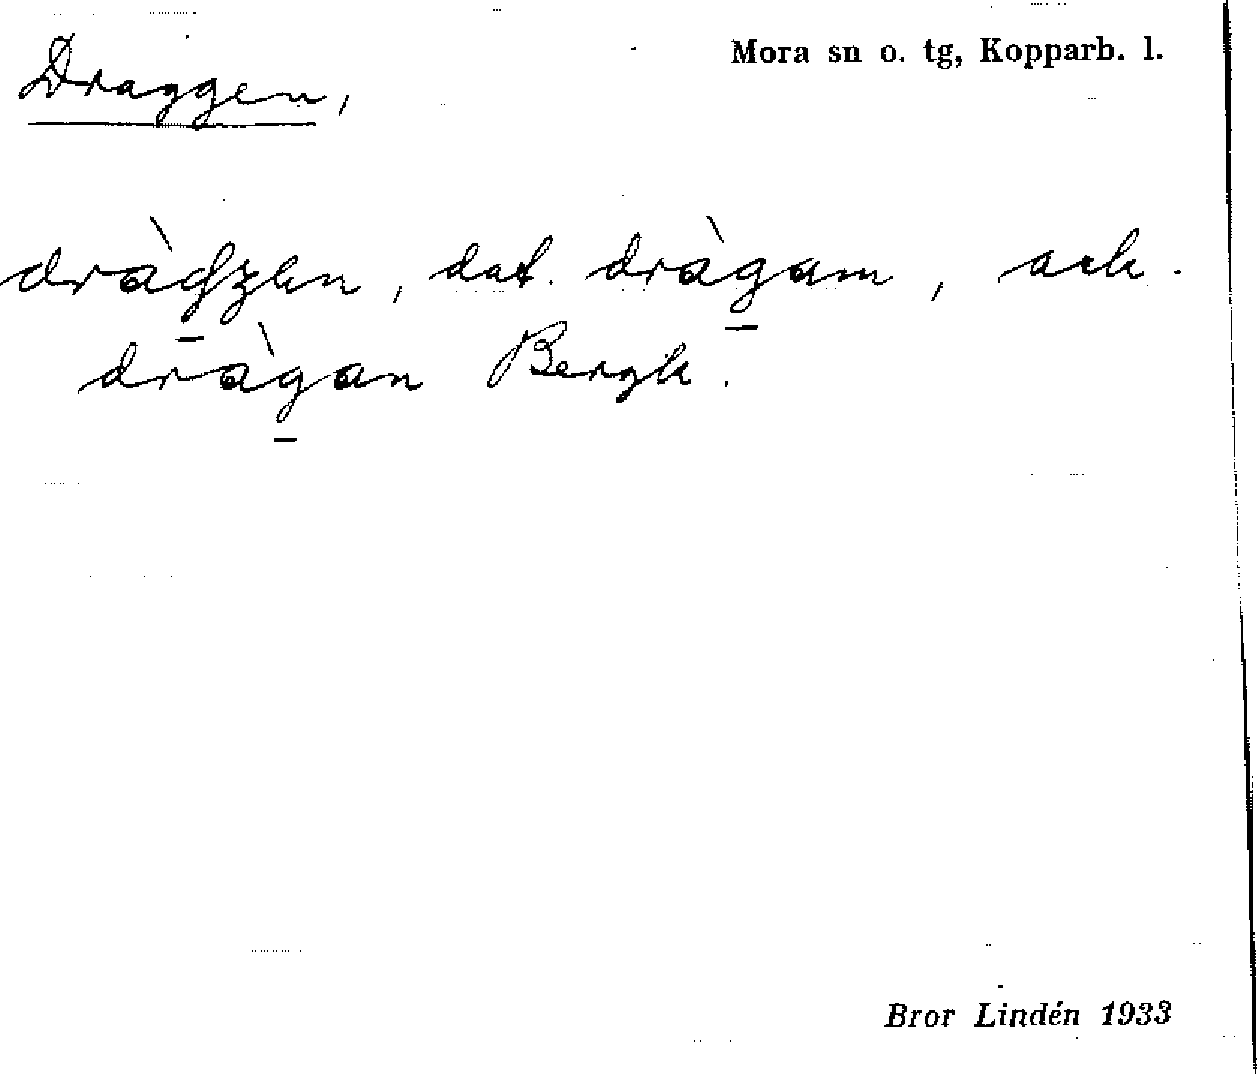 Mora sn o. tg, Kopparb. l.
Draggen,
dat. dràgam, ack.
dràgan Bergk.
Bror Lindén 1933